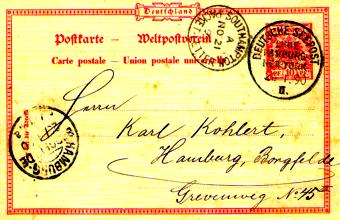 Deutschland
Postkarte – Weltpostverein
Carte postale – Union postale universelle
SOUTHAMPTON
A
NO 21
DEUTSCHE SEEPOST
LINIE
HAMBURG-
NEW-YORK
90
II.
10
Herrn
Karl Kohlert,
Hamburg, Borgfelde
Grevenweg No. 45
HAMBURG